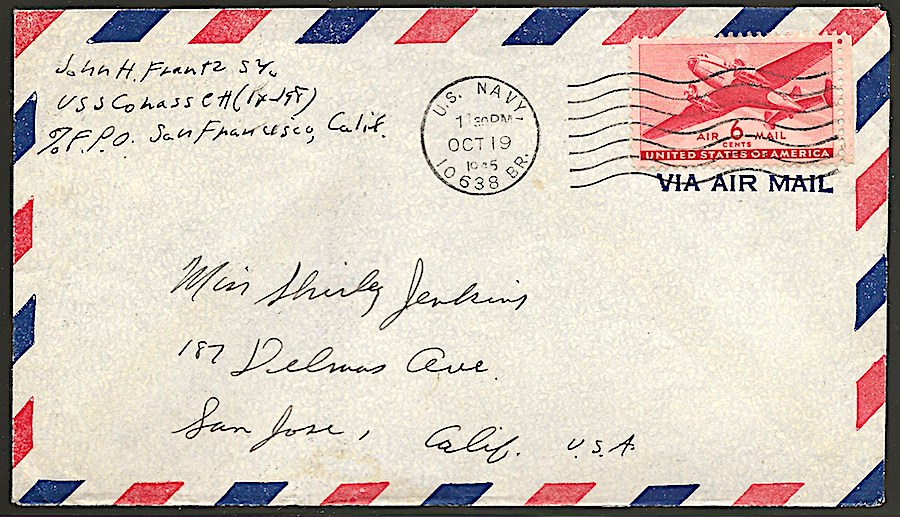 John H. Frantz SY.
USS Cohassett (IX-198)
℅ F.P.O. San Francesco, Calif.
U.S. NAVY
1 30 PM
OCT 19
1945
10638 BR.
AIR 6 MAIL
CENTS
UNITED STATES OF AMERICA
VIA AIR MAIL
Miss Shirley Jenkins
187 Delmas Ave.
San Jose, Calif. U.S.A.